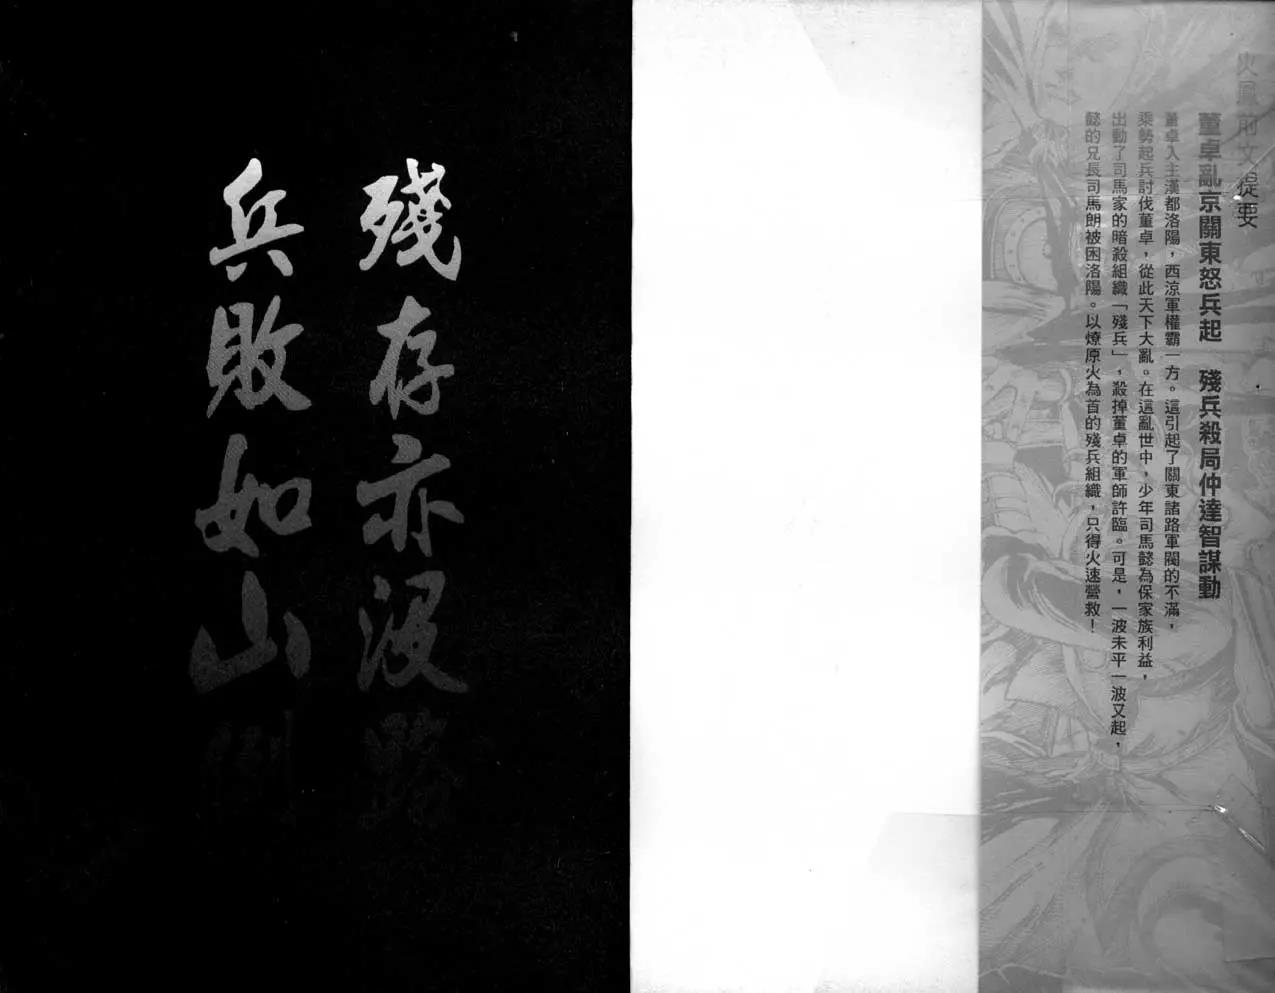 火鳳前文提要
董卓亂京關東怒兵起　殘兵殺局仲達智謀動
董卓入主漢都洛陽，西涼軍權霸一方。這引起了關東諸路軍閥的不滿，
乘勢起兵討伐董卓，從此天下大亂。在這亂世中，少年司馬懿為保家族利益，
出動了司馬家的暗殺組織「殘兵」，殺掉董卓的軍師許臨。可是，一波未平一波又起，
懿的兄長司馬朗被困洛陽。以燎原火為首的殘兵組織，只得火速營救！
殘存亦沒路
兵敗如山倒